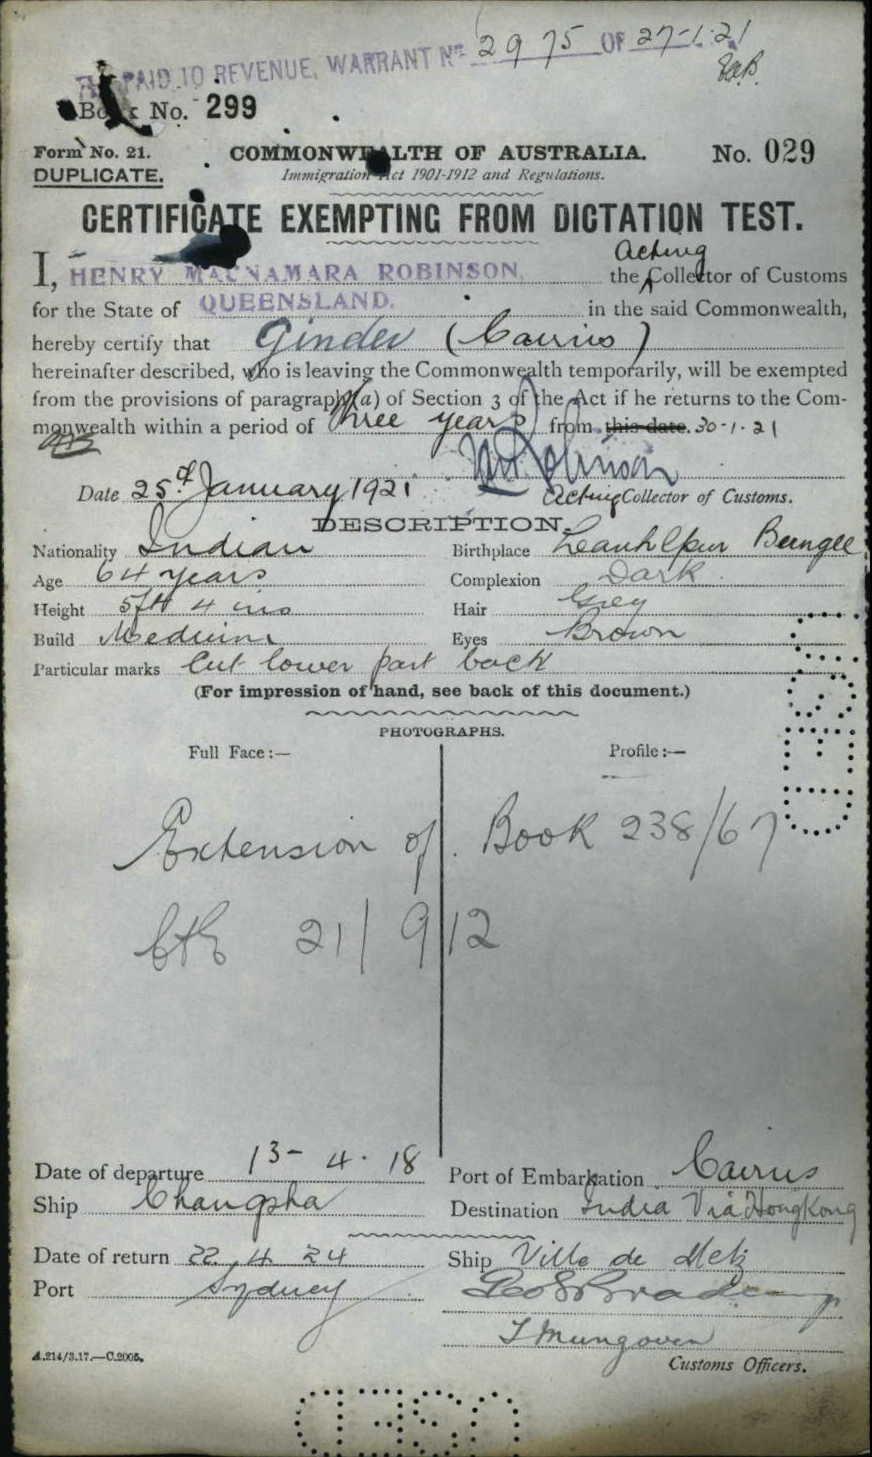 PAID TO REVENUE, WARRANT No. 2975 OF 27-1-21
Book No. 299
Form No. 21. COMMONWEALTH OF AUSTRALIA. No. 029
DUPLICATE. Immigration Act 1901-1912 and Regulations.
CERTIFICATE EXEMPTING FROM DICTATION TEST.
Acting
I, HENRY MACNAMARA ROBINSON, the Collector of Customs
for the State of QUEENSLAND. in the said Commonwealth,
hereby certify that Ginder (Cairns)
hereinafter described, who is leaving the Commonwealth temporarily, will be exempted
from the provisions of paragraph (a) of Section 3 of the Act if he returns to the Com-
monwealth within a period of three years from this date. 30-1-21
Date 25th January 1921 Acting Collector of Customs.
DESCRIPTION.
Nationality Indian Birthplace
Age 64 years Complexion Dark
Height 5ft 4 ins Hair Grey
Build Medium Eyes Brown
Particular marks Cut lower part back
(For impression of hand, see back of this document.)
PHOTOGRAPHS.
Full Face:— Profile:—
Extension of Book 238/67
21/9/12
Date of departure 13-4-18 Port of Embarkation Cairns
Ship Changsha Destination India Via HongKong
Date of return 22.4.24 Ship Ville de Metz
Port Sydney
T Mungoven
A.214/3.17.—C.2005. Customs Officers.
USED
USED